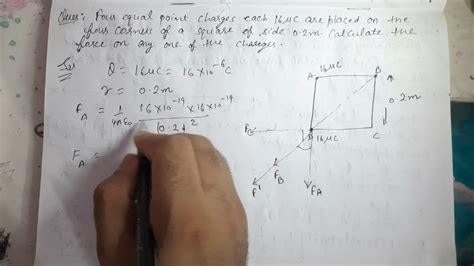 Ques: Four equal point charges each 16μC are placed on the
four corners of a square of side 0.2m. Calculate the
force on any one of the charges.
Q = 16μC = 16×10⁻⁶C
r = 0.2m
F_A = 1/4πε₀ 16×10⁻¹⁹ ×16×10⁻¹⁹ / (0.2)²
F_A =
A 16μC B
0.2m
16μC C
F_B
F_A